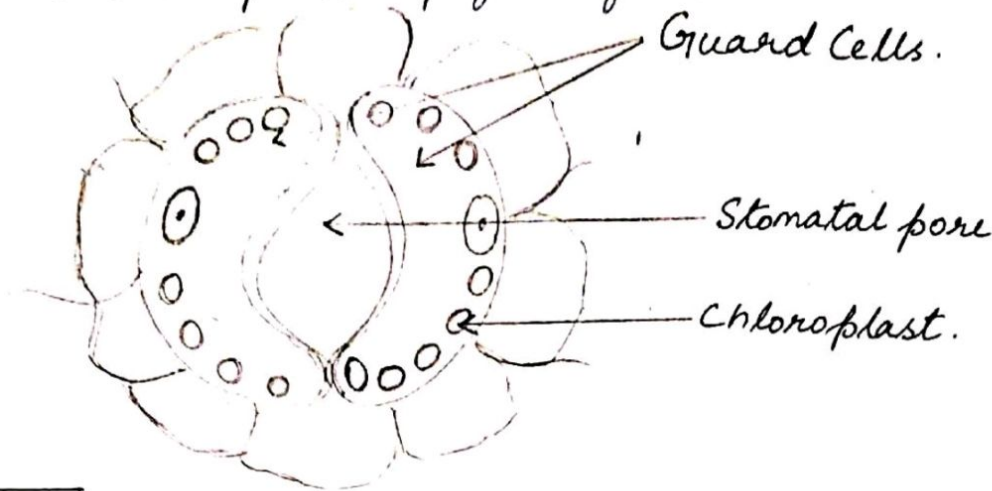 Guard Cells.
Stomatal pore
Chloroplast.